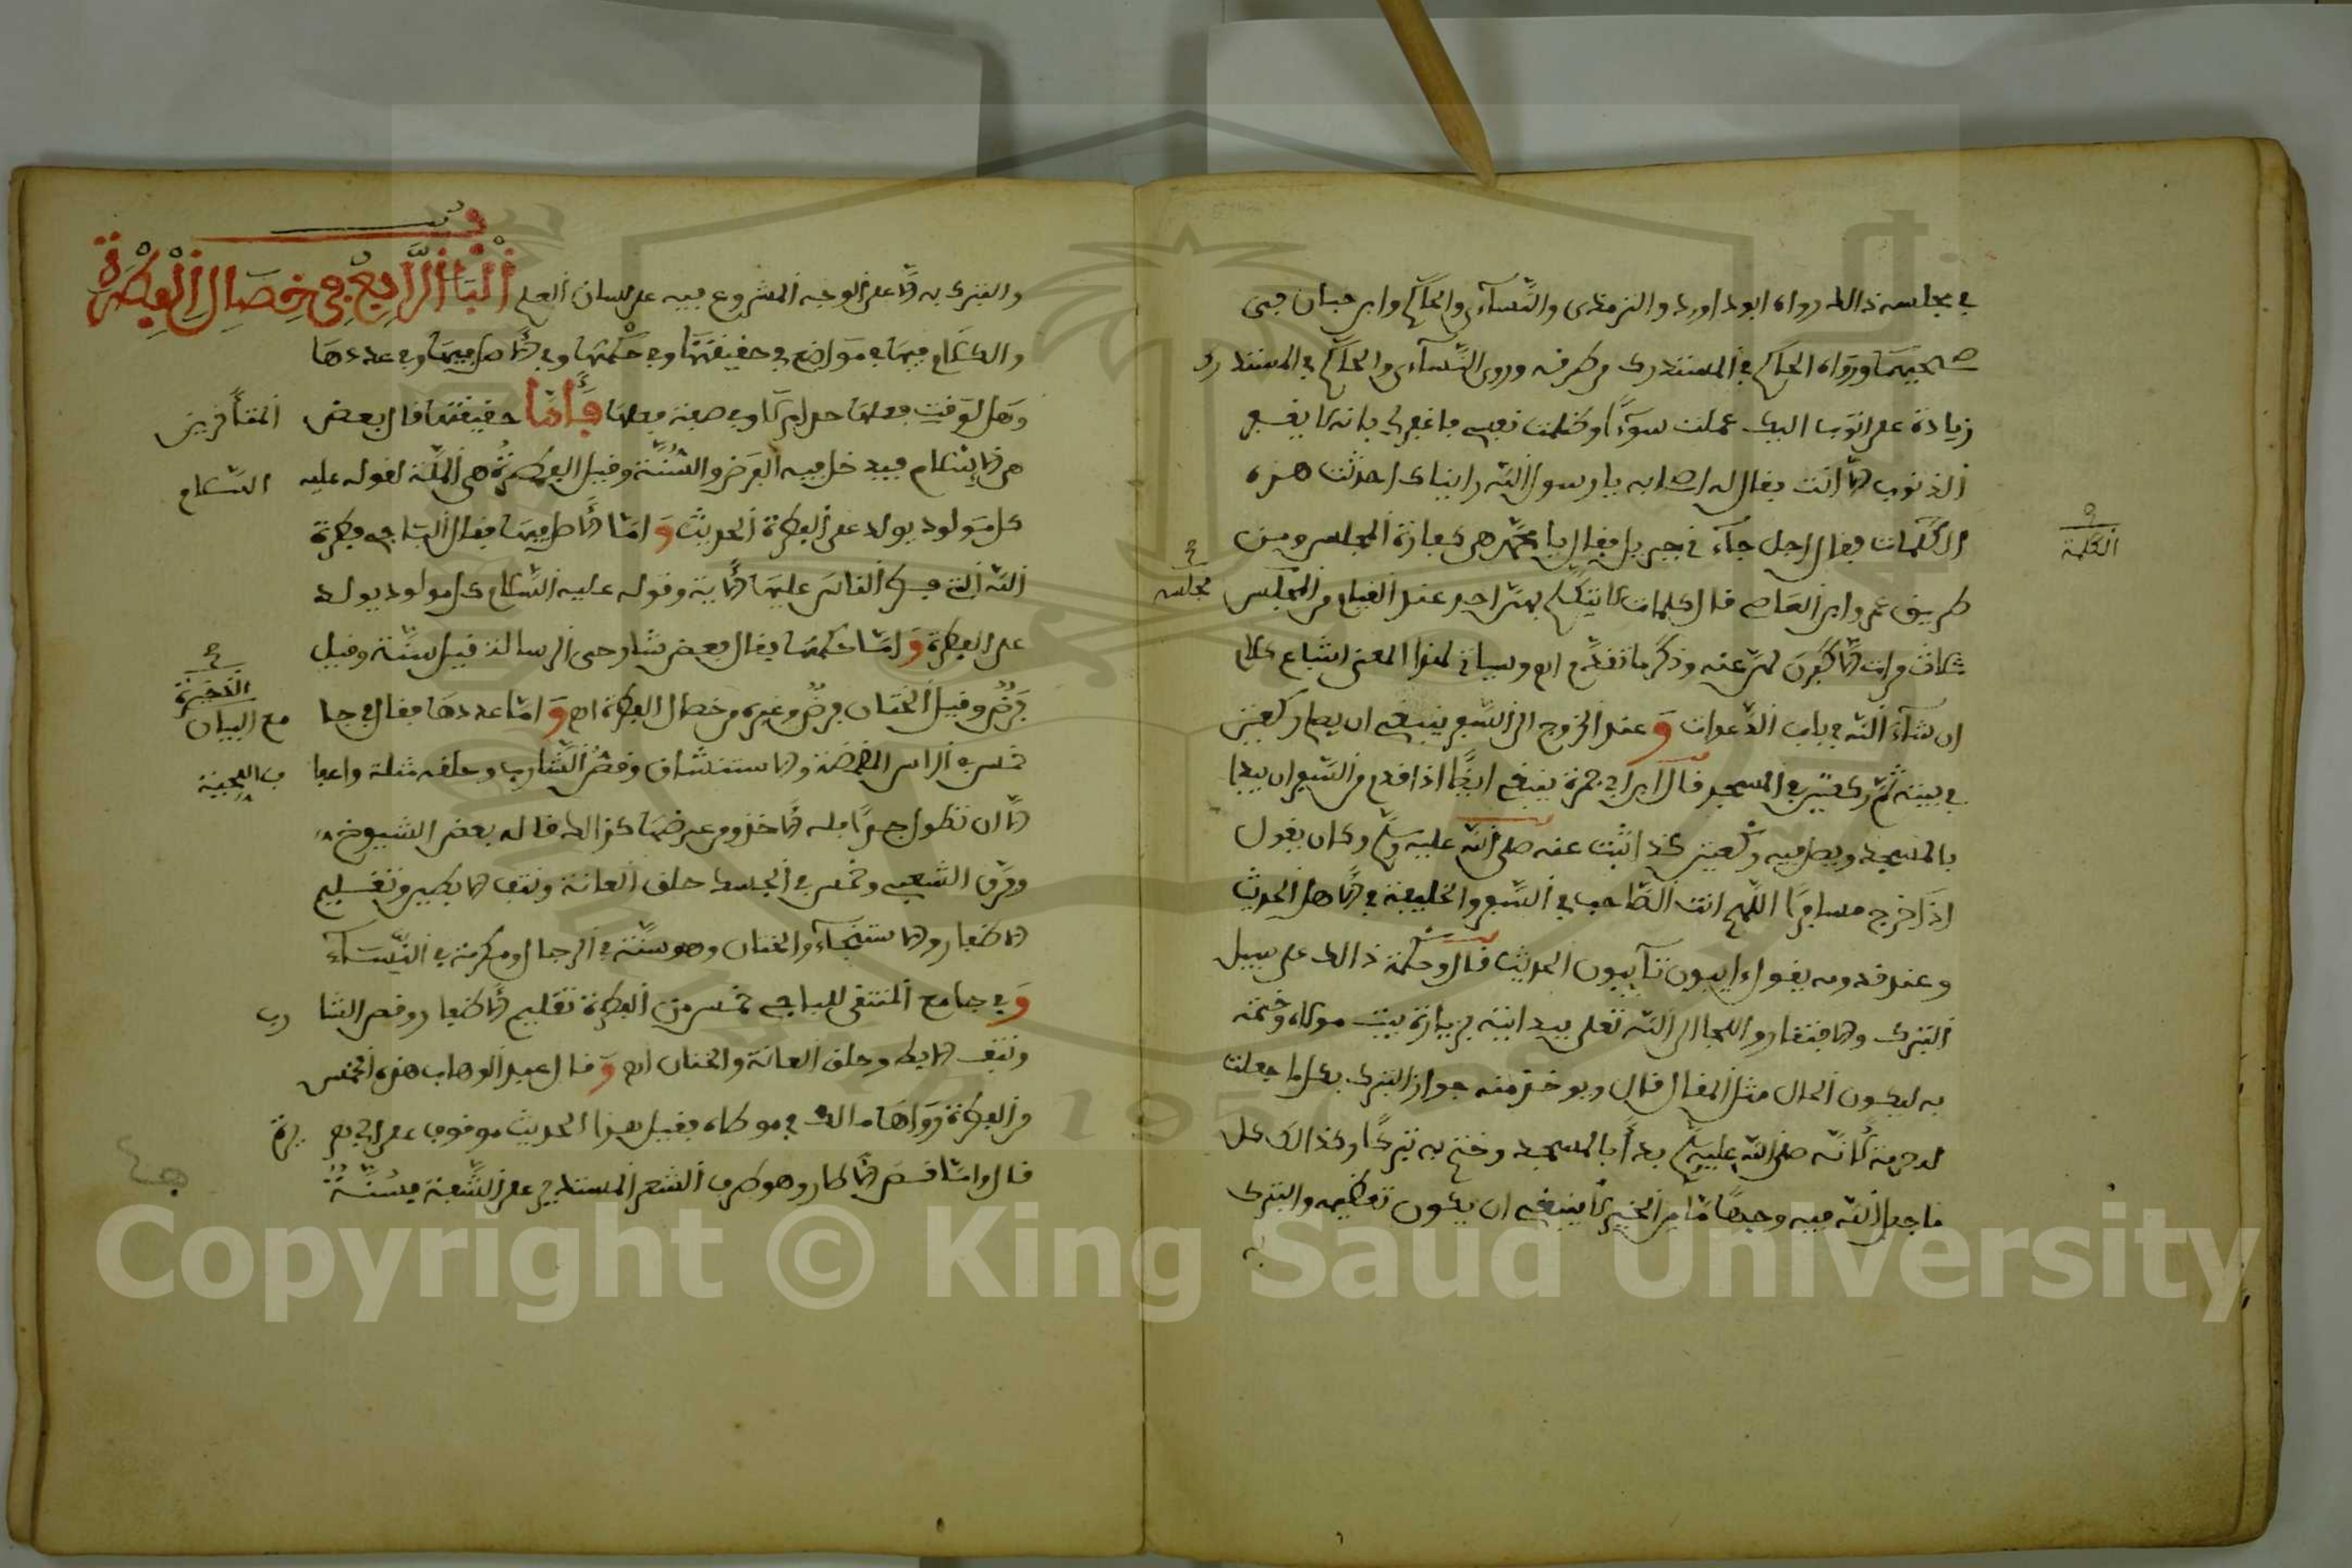 في مجلسه ذالك رواه ابو داود والترمذي والنسآءي والحاكم وابن حبان في
صحيحيهما ورواه الحاكم في المستدرك من طرفه وروى النسآءي والحاكم في المستدرك
زيادة علي اتوب اليك عملت سوءًا وظلمت نفسي فاغفر لي فانه لا يغفر
الذنوب الا انت فقال له اصحابه يا رسول الله رايناك احدثت هذه
الكلمات فقال اجل جآءني جبريل فقال يا محمد هن كفارة المجلس ومن
الكلمة
مجلسه
طريق عمرو ابن العاصي قال كلمات لا يتكلم بهن احد عند القيام من المجلس
ثلاث مرات الا كفرن لهن عنه وذكر ما تقدم اه وسياتي لهذا المعنى اشباع كلام
ان شآء الله في باب الدعوات وعند الخروج الى السفر ينبغي ان يصلي ركعتين
في بيته ثم ركعتين في المسجد قال ابن ابي جمرة ينبغي ايضًا اذا قدم من السفر ان يبدا
بالمسجد ويصلي فيه ركعتين كذا ثبت عنه صلى الله عليه وسلم وكان يقول
اذا خرج مسافرًا اللهم انت الصاحب في السفر والخليفة في الاهل الحديث
وعند قدومه يقول ءايبون تآيبون الحديث قال وحكمة ذالك على سبيل
التبرك والافتقار واللجا الى الله تعلى ببدايته بزيارة بيت مولاه وختمه
به ليكون الحال مثل المقال قال ويوخذ منه جواز التبرك بكل ما جعلت
له حرمة لانه صلى الله عليه وسلم بدأ بالمسجد وختم به تبركًا وكذالك كل
ما جعل الله فيه وجهًا ما من الخير لا ينبغي ان يكون تعظيمه والتبرك
به
والتبرك به الا على الوجه المشروع فيه على لسان العلم الباب الرابع في خصال الفطرة
والكلام فيها في مواضع في حقيقتها وفي حكمها وفي الاصل فيها وفي عددها
وهل لوقت فعلها حد ام لا وفي صفة فعلها فأما حقيقتها قال بعض المتأخرين
هي الاسلام فيدخل فيه الفرض والسنة وقيل الفطرة هي الملة لقوله عليه السلام
كل مولود يولد على الفطرة الحديث وامّا الاصل فيها فقال الباجي فطرة
الله التي فطر الناس عليها الاية وقوله عليه السلام كل مولود يولد
على الفطرة وامّا حكمها فقال بعض شارحي الرسالة قيل سنة وقيل
فرض وقيل الختان فرض وغيره من خصال الفطرة اه وامّا عددها فقال في جا مع البيان
الذخيرة
خمس في الراس المضمضة والاستنشاق وقص الشارب وحلقه مثلة واعفا ء اللحية
الا ان تطول جدًا فله الاخذ من عرضها كذالك قاله بعض الشيوخ
وفرق الشعر وخمس في الجسد حلق العانة ونتف الابطين وتقليم
الاظفار والاستنجآء والختان وهو سنة في الرجال ومكرمة في النسآء
وفي جامع المنتقى للباجي خمس من الفطرة تقليم الاظفار وقص الشا رب
ونتف الابط وحلق العانة والختان اه وقال عبد الوهاب هذه الخمس
من الفطرة رواها مالك في موطاه فقيل هذا الحديث موقوف على ابي هريرة
قال وامّا قص الاطار وهو طرف الشعر المستدير على الشفة فسنة